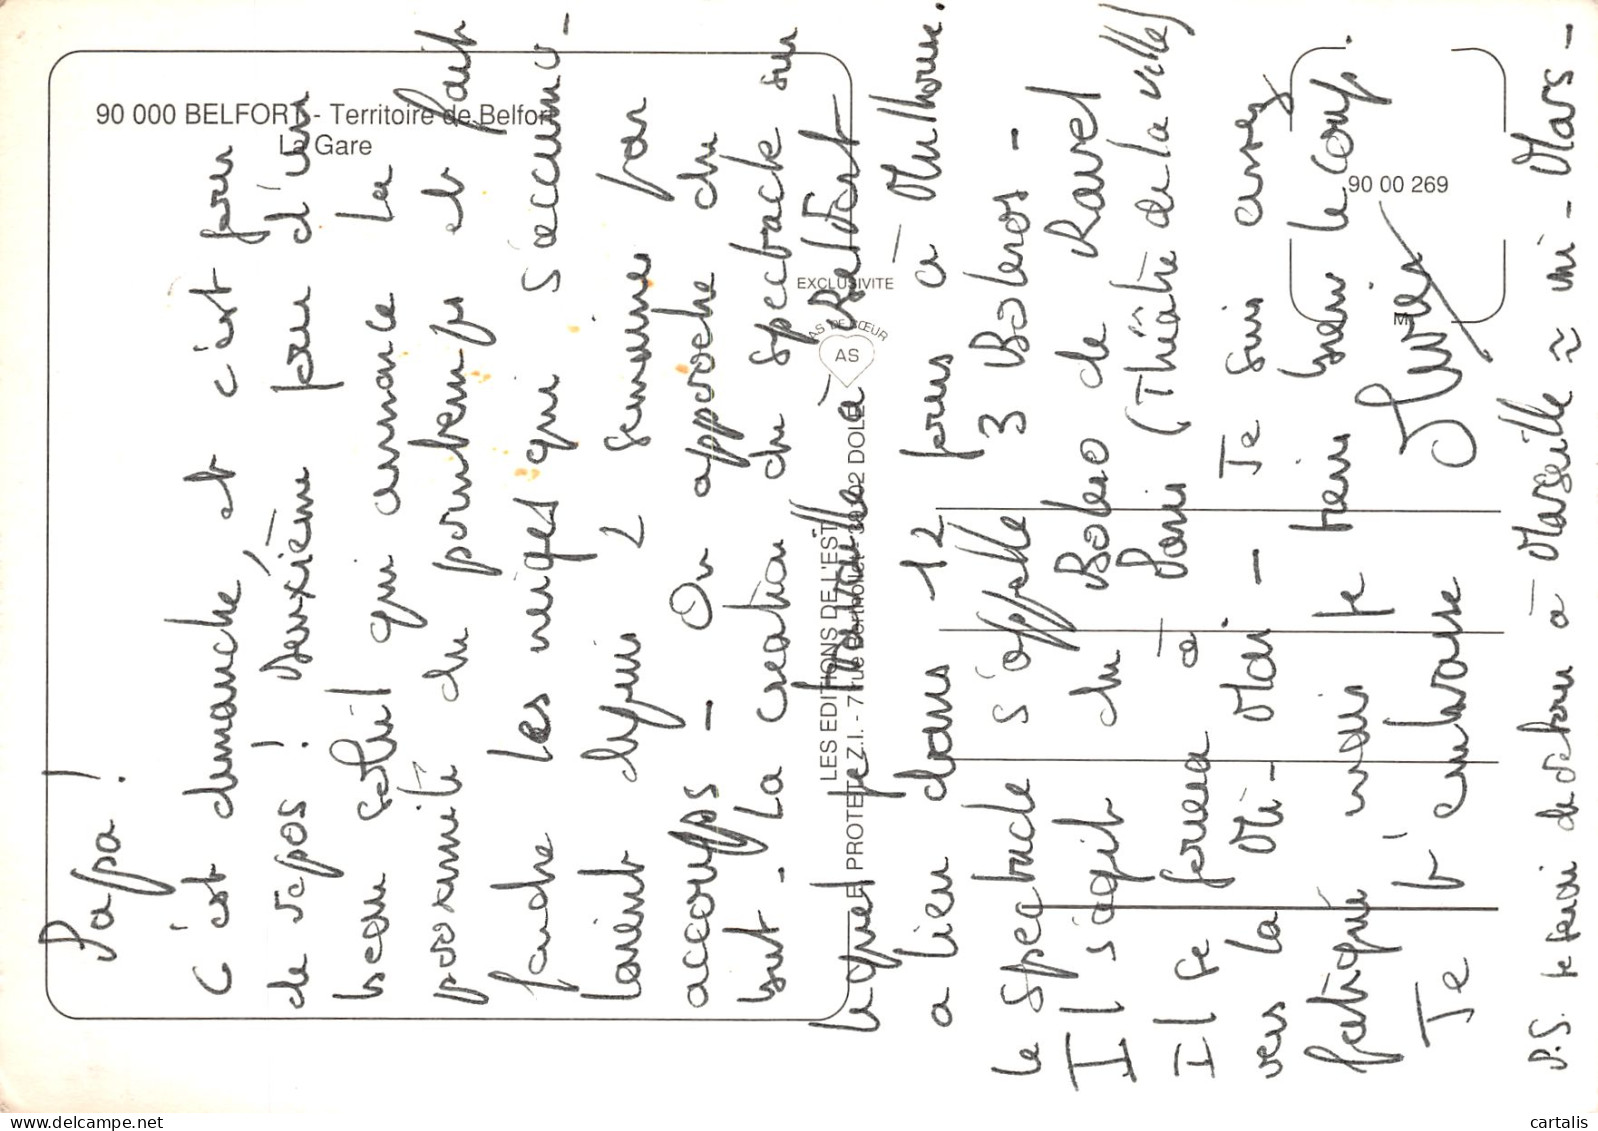 90 000 BELFORT - Territoire de Belfort
La Gare
EXCLUSIVITE
AS DE CŒUR
AS
LES EDITIONS DE L'EST
LE PROTET Z.I. - 7 rue Berthollet - 39102 DOLE
90 00 269
M
Papa !
C'est dimanche, et c'est jour
de repos ! Deuxième jour d'un
beau soleil qui annonce la
proximité du printemps et fait
fondre les neiges qui s'accumu-
laient depuis 2 semaines par
accoups - On approche du
but - La création du spectacle sur
lequel je travaille à Belfort
a lieu dans 12 jours à Mulhouse.
Le spectacle s'appelle 3 Boleros -
Il s'agit du Bolero de Ravel
Il se jouera à Paris (Théâtre de la ville)
vers la Mi-Mai - Je suis assez
fatigué mais je tiens bien le coup.
Je t'embrasse
P.S. je serai de retour à Marseille ≈ mi-Mars -
cartalis
delcampe.net